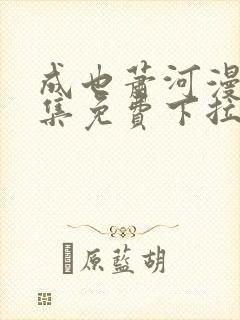 成也萧河漫
集免費下拉
原藍胡